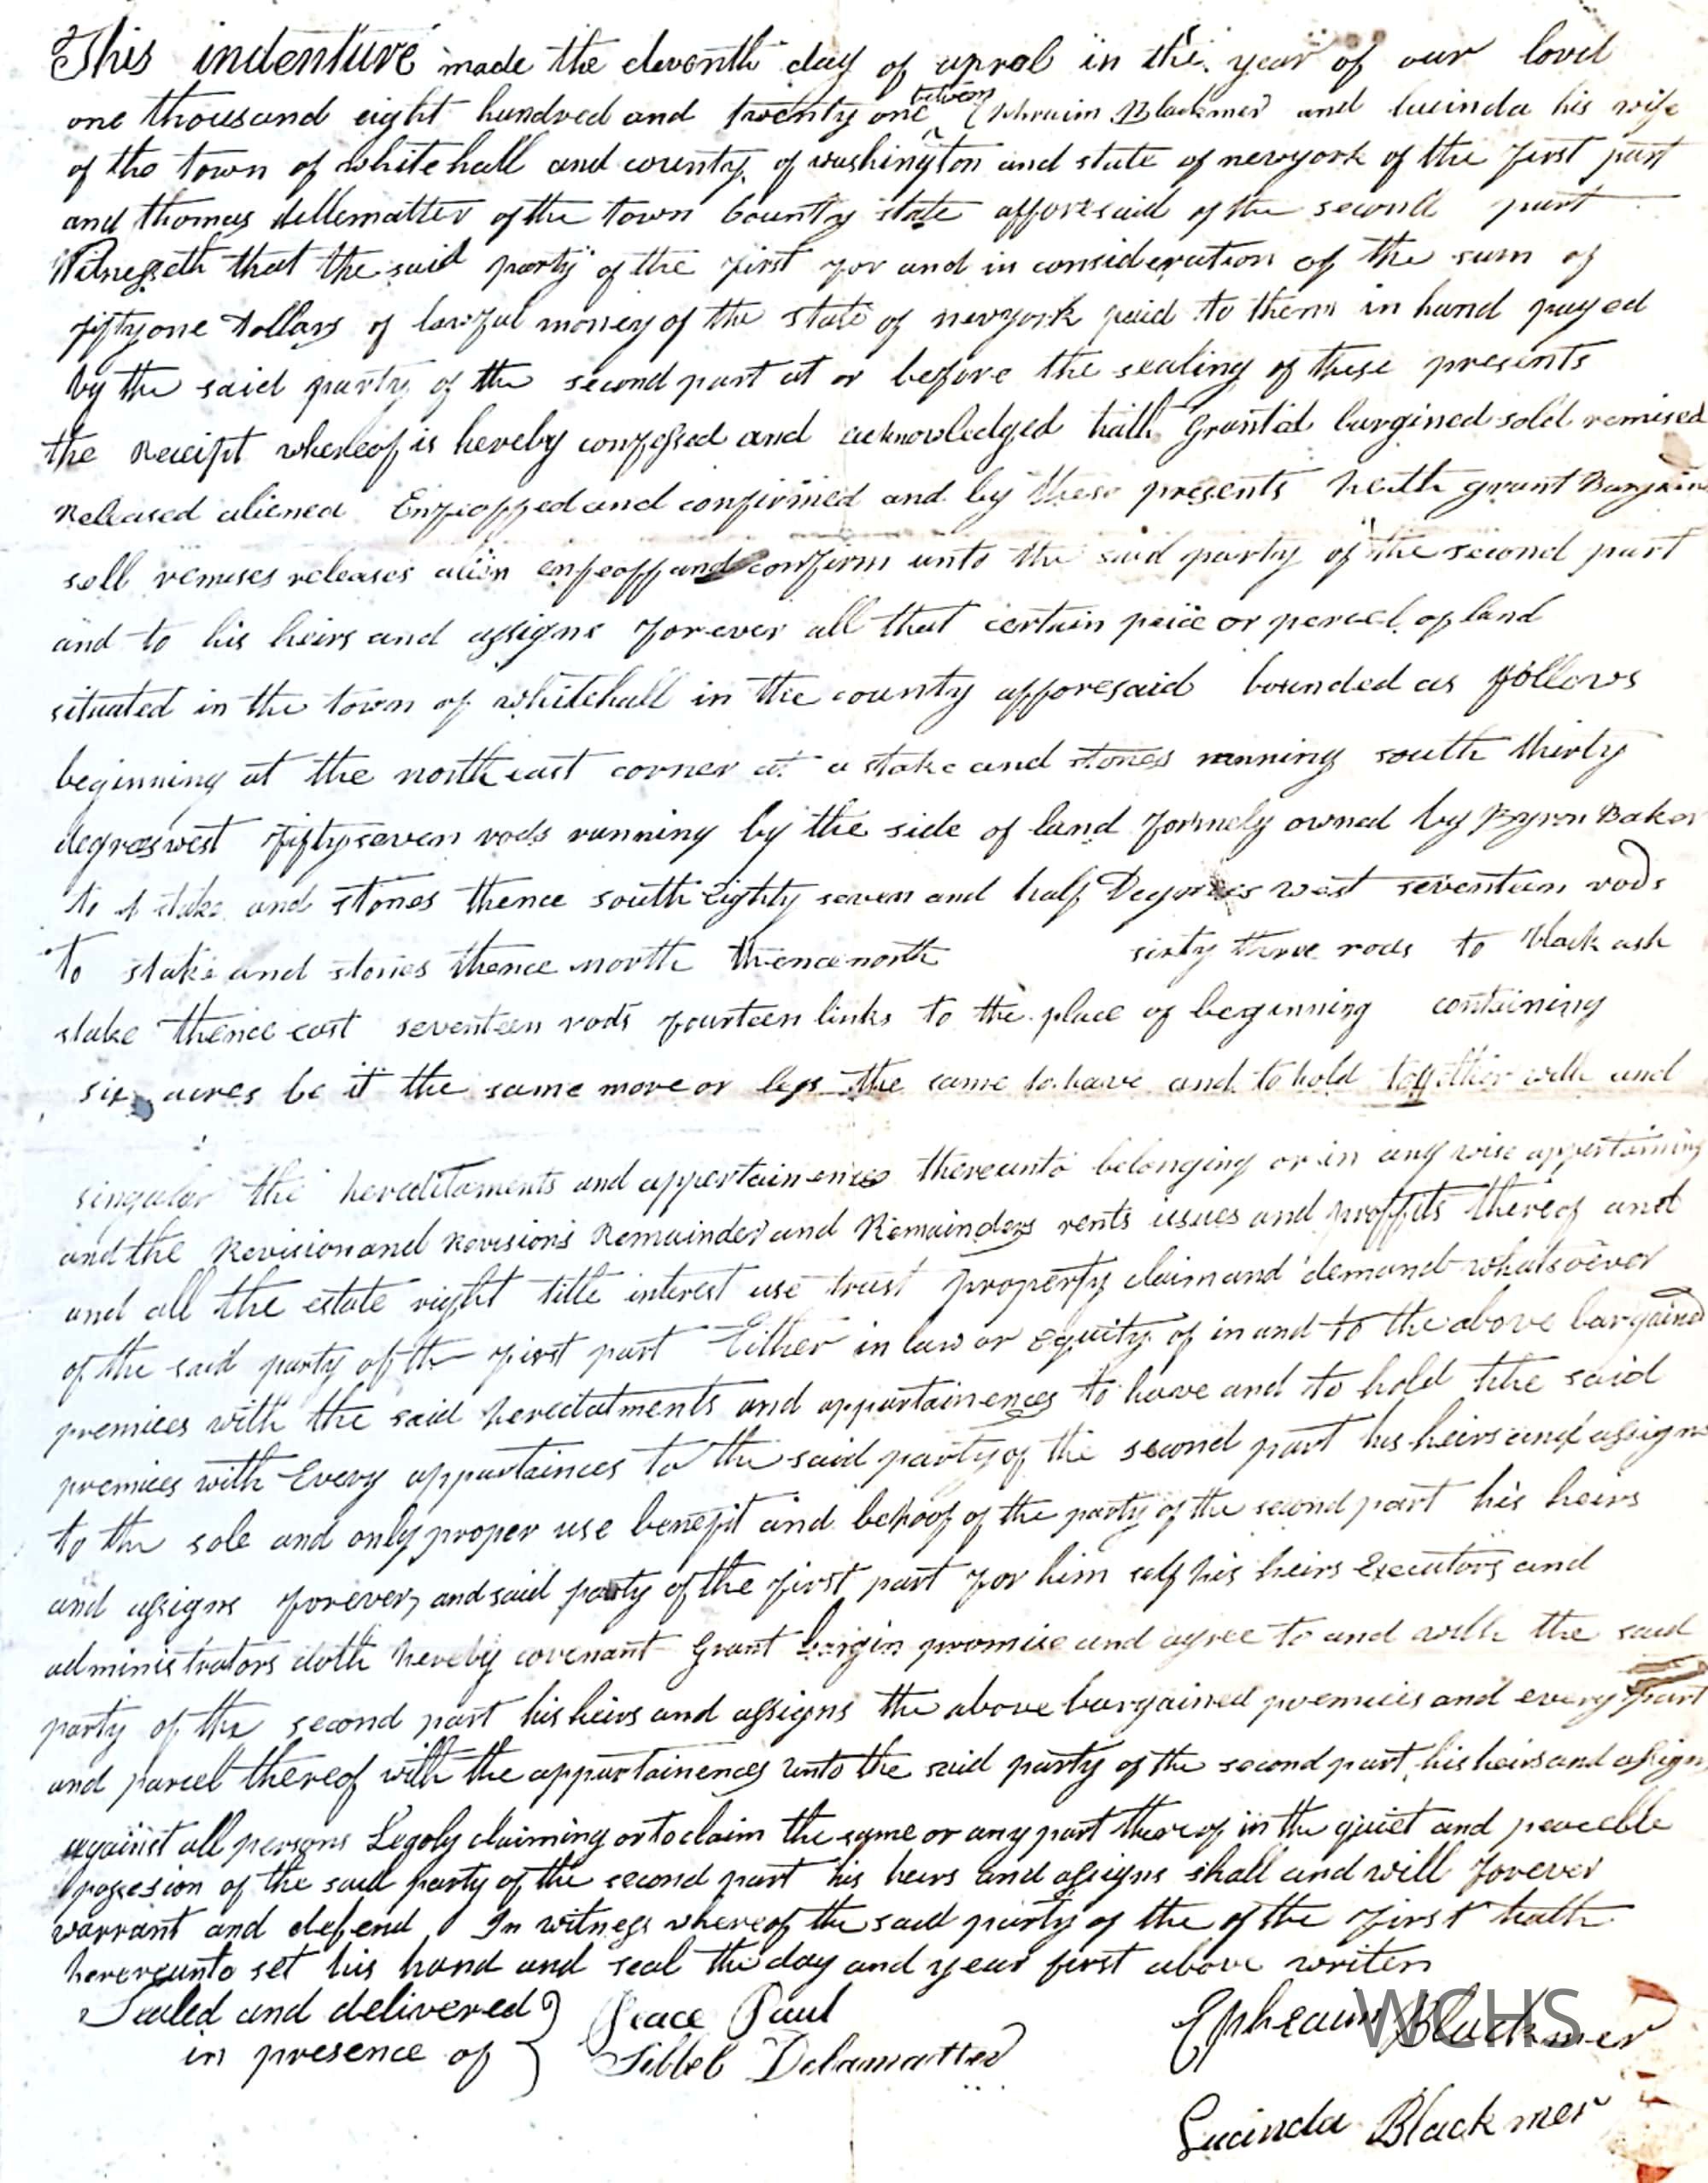 This indenture made the eleventh day of aprol in the year of our lord
one thousand eight hundred and twenty one between Ephraim Blackmer and lucinda his wife
of the town of whitehall and county of washington and state of newyork of the first part
and thomas dellematter of the town County state afforesaid of the second part
Witnesseth that the said party of the first for and in consideration of the sum of
fiftyone Dollars of lawful money of the state of newyork paid to them in hand payed
by the said party of the second part at or before the sealing of these presents
the Receipt whereof is hereby confessed and acknowledged hath Granted bargined sold remised
Released aliened Enfeoffed and confirmed and by these presents heath grant Bargain
sell remises releases alien enfeoff and confirm unto the said party of the second part
and to his heirs and assigns forever all that certain peice or percel of land
situated in the town of whitehall in the county afforesaid bounded as follows
beginning at the north east corner at a stake and stones running south thirty
degrees west fiftyseven rods running by the side of land formely owned by Byron Baker
to A stake and stones thence south Eighty seven and half Degrees west seventeen rods
To stake and stones thence north thence north sixty three rods to black ash
stake thence east seventeen rods fourteen links to the place of beginning containing
six acres be it the same more or less the same to have and to hold together with and
singular the hereditaments and appertainences thereunto belonging or in any wise appertaining
and the Revision and Revisions Remainder and Remainders rents issues and proffits thereof and
and all the estate right title interest use trust property claim and demand whatsoever
of the said party of the first part Either in law or Equity of in and to the above bargaind
premices with the said heredatments and appurtainences to have and to hold the said
premices with Every appurtainces to the said party of the second part his heirs and assigns
to the sole and only proper use benefit and behoof of the party of the second part his heirs
and assigns forever, and said party of the first part for him self his heirs Executors and
administrators doth hereby covenant Grant bargin promise and agree to and with the said
party of the second part his heirs and assigns the above bargained premicis and every part
and parcel thereof with the appurtainences unto the said party of the second part, his heirs and assigns
against all persons Legoly claiming or to claim the same or any part thereof in the quiet and peaceble
possesion of the said party of the second part his heirs and assigns shall and will forever
warrant and defend In witness whereof the said party of the of the first hath
herereunto set his hand and seal the day and year first above writen
Sealed and delivered } Peace Paul Ephraim Blackmer
in presence of Sibbel Delamatter
Lucinda Blackmer
WCHS